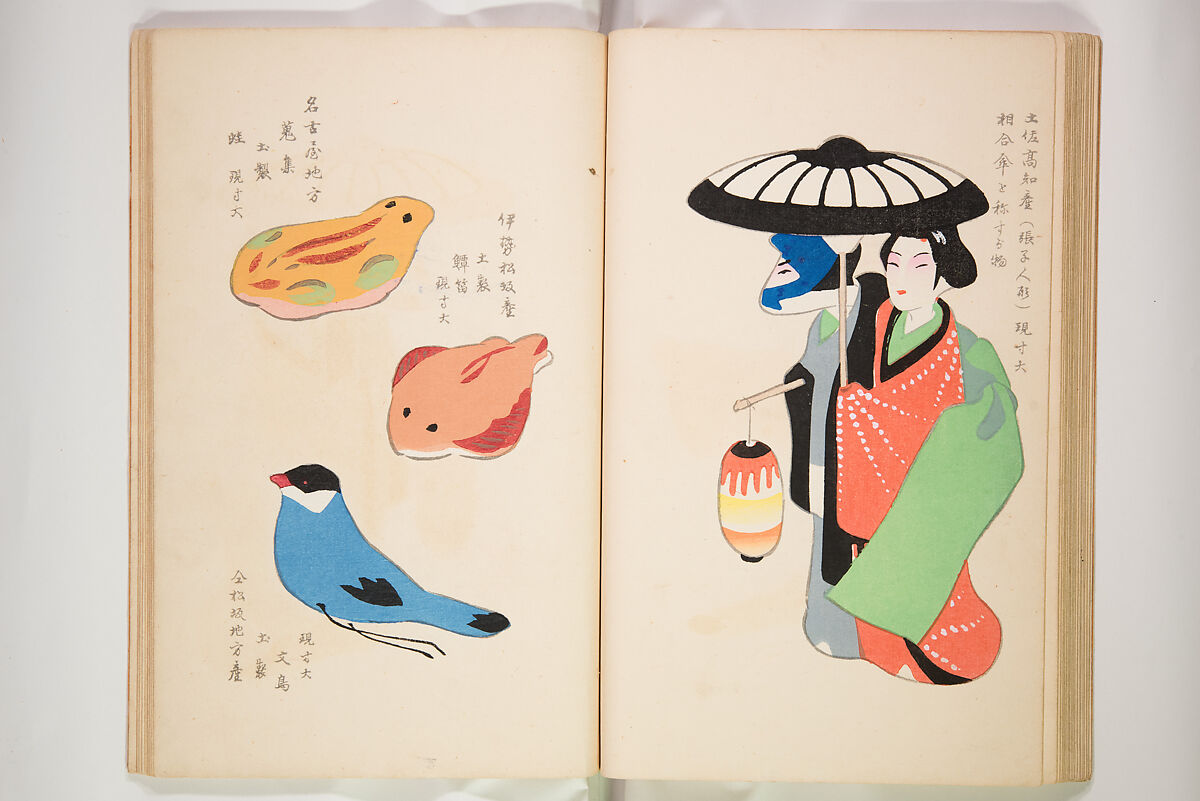 土佐高知産（張子人形）現寸大
相合傘と称する物
名古屋地方
蒐集
土製
蛙 現寸大
伊勢松坂産
土製
鱏笛
現寸大
現寸大
文鳥
土製
仝松坂地方産